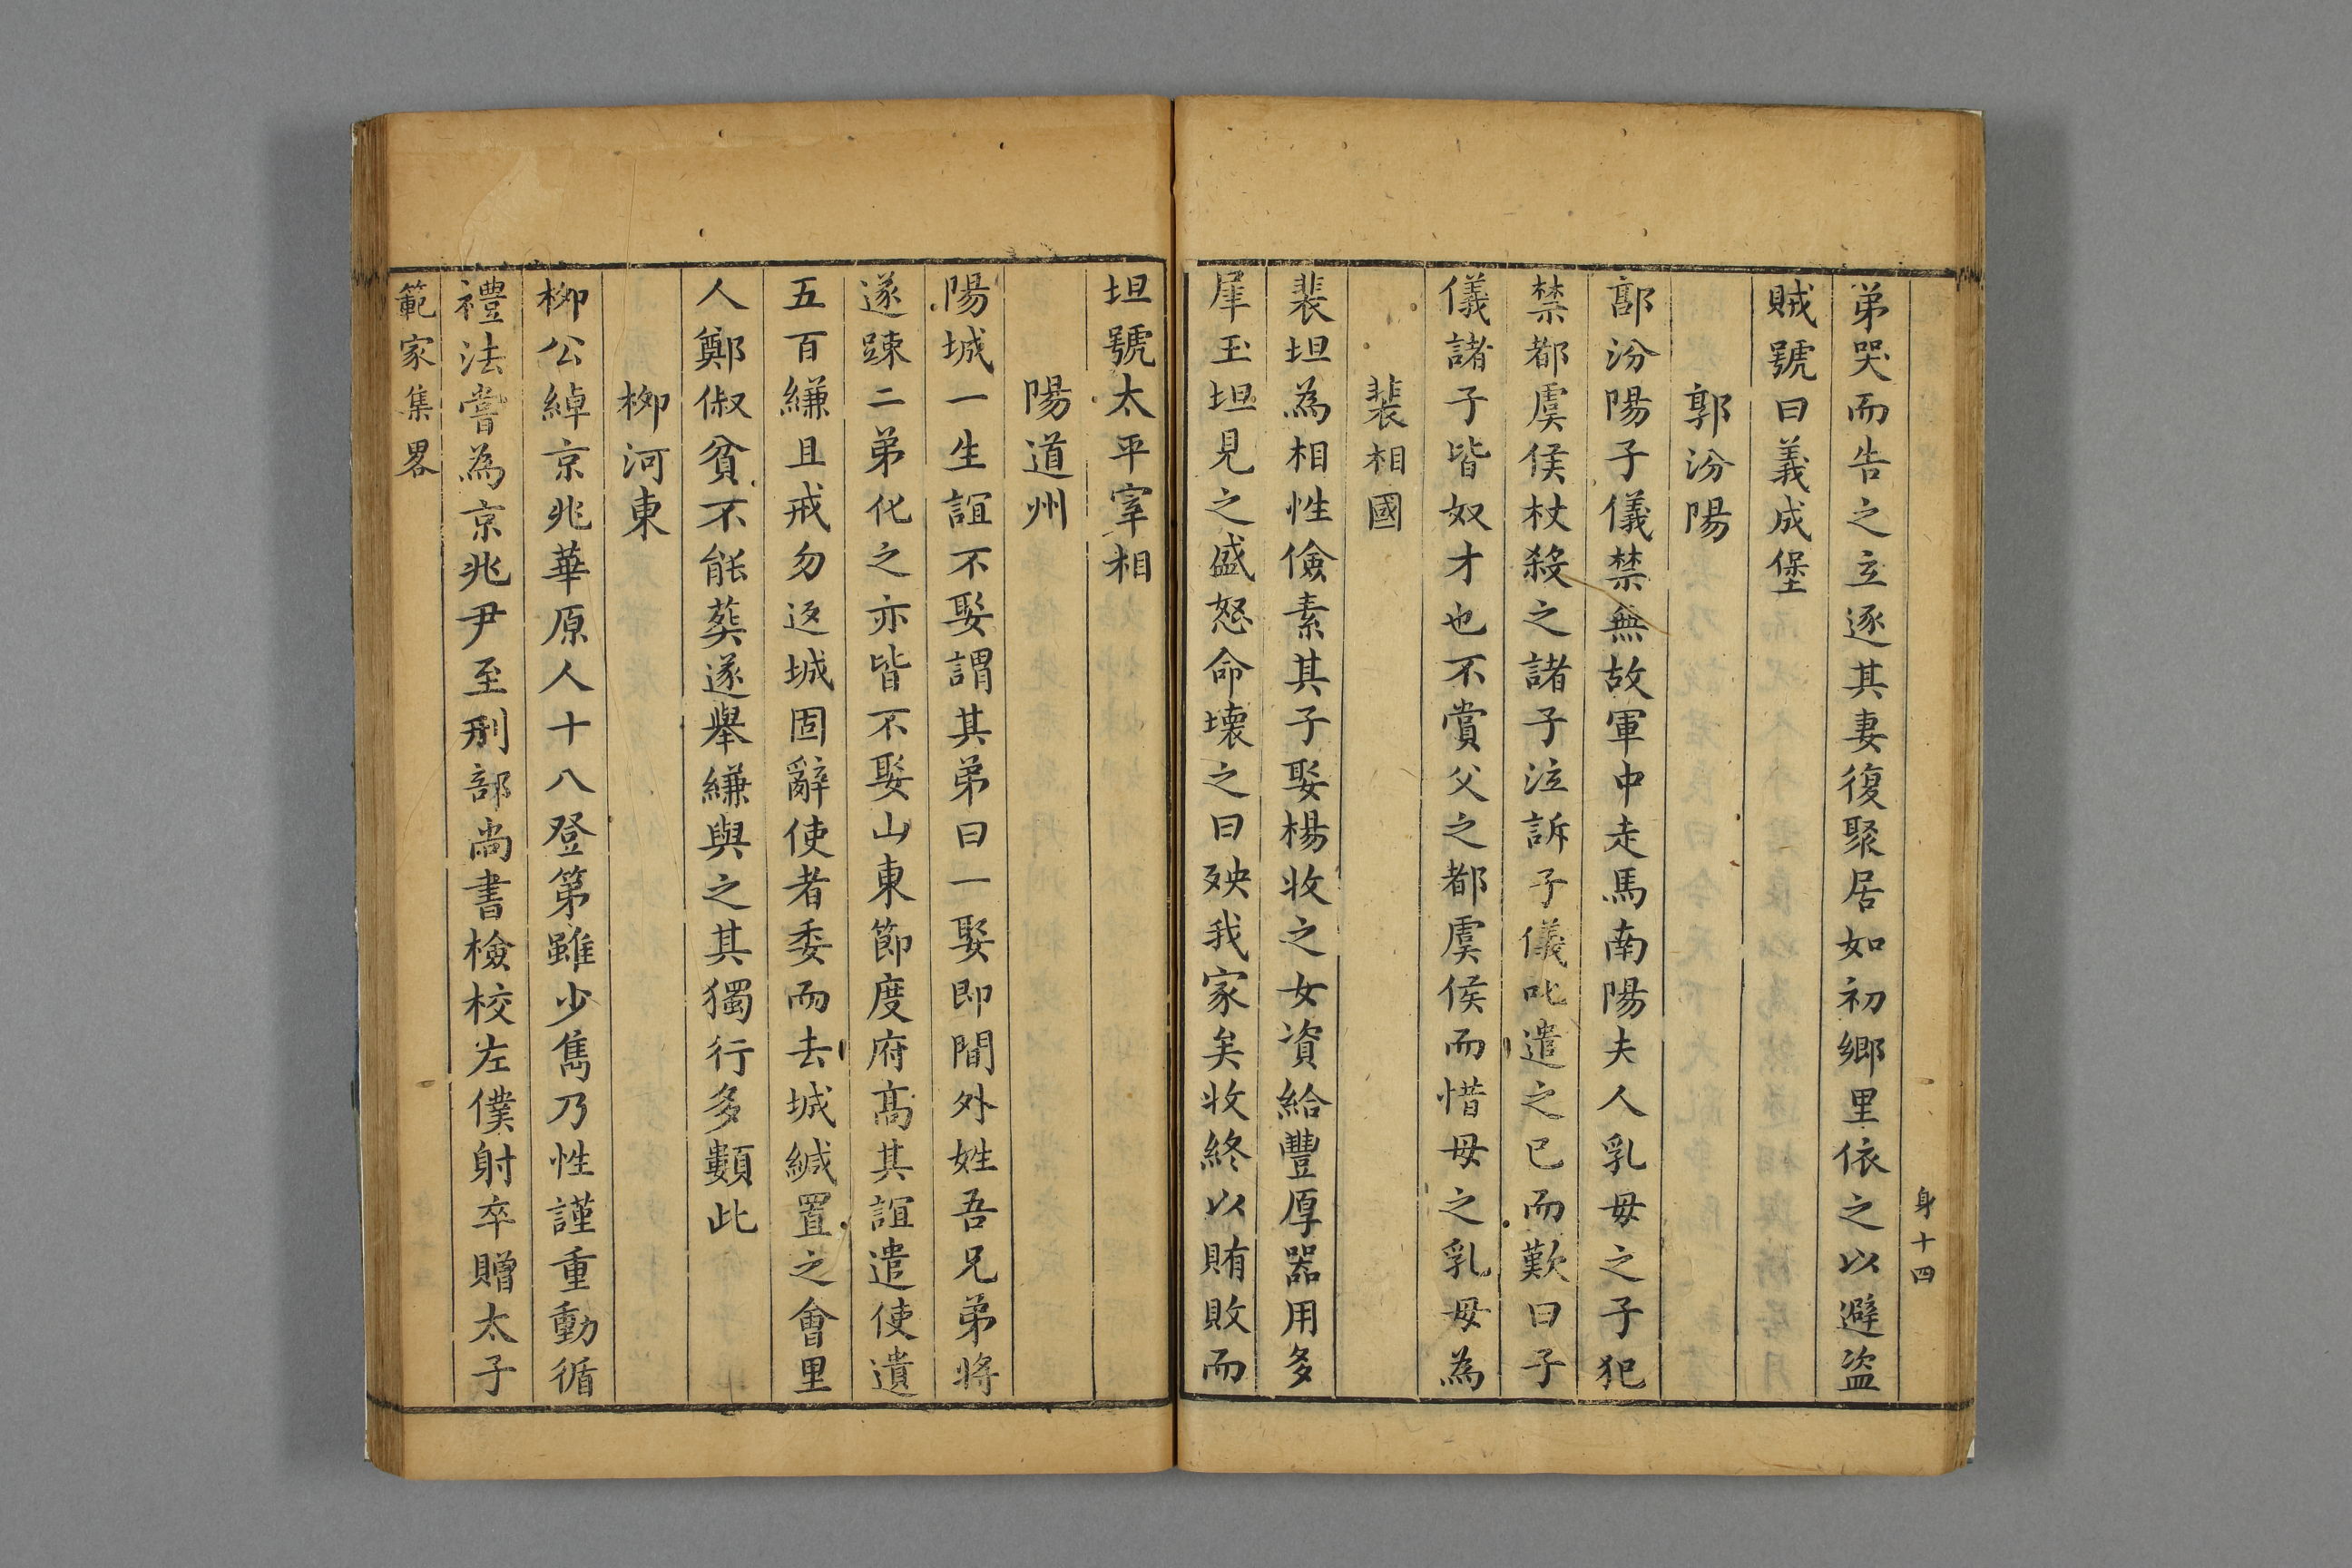 身十四
弟哭而告之立逐其妻復聚居如初鄉里依之以避盜
賊號曰義成堡
郭汾陽
郭汾陽子儀禁無故軍中走馬南陽夫人乳母之子犯
禁都虞侯杖殺之諸子泣訴子儀叱遣之已而歎曰子
儀諸子皆奴才也不賞父之都虞侯而惜母之乳母為
裴相國
裴坦為相性儉素其子娶楊收之女資給豐厚器用多
犀玉坦見之盛怒命壞之曰殃我家矣收終以賄敗而
坦號太平宰相
陽道州
陽城一生誼不娶謂其弟曰一娶即間外姓吾兄弟將
遂踈二弟化之亦皆不娶山東節度府高其誼遣使遺
五百縑且戒勿返城固辭使者委而去城緘置之會里
人鄭俶貧不能葬遂舉縑與之其獨行多類此
柳河東
柳公綽京兆華原人十八登第雖少雋乃性謹重動循
禮法嘗為京兆尹至刑部尚書檢校左僕射卒贈太子
範家集畧